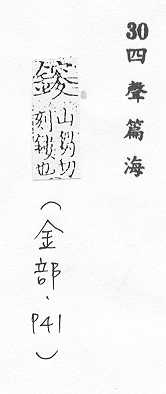 30
四聲篇海
山芻切
刻鏤也
（金部．P41）